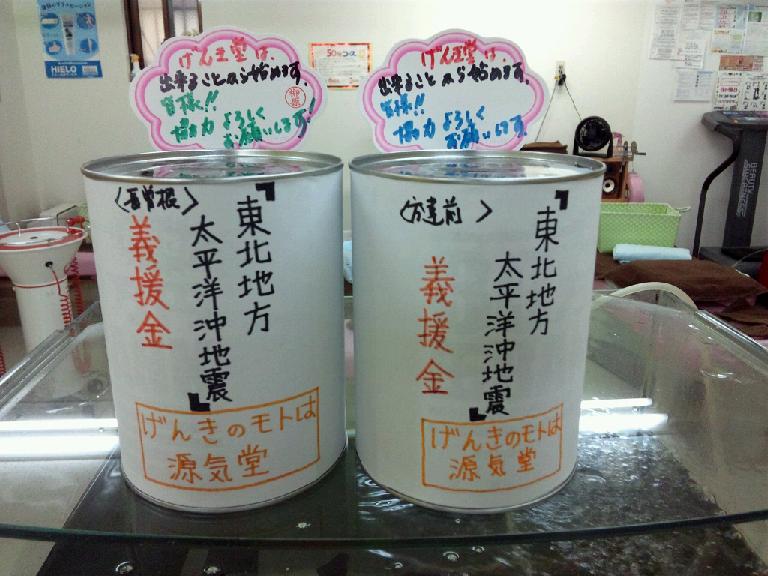 げんき堂は、
出来ることから始めます。
皆様!!
協力よろしく
お願いします!
げんき堂は、
出来ることから始めます。
皆様!!
協力よろしく
お願いします!
『東北地方
太平洋沖地震』
義援金
げんきのモトは
源気堂
『東北地方
太平洋沖地震』
義援金
げんきのモトは
源気堂
HIELO